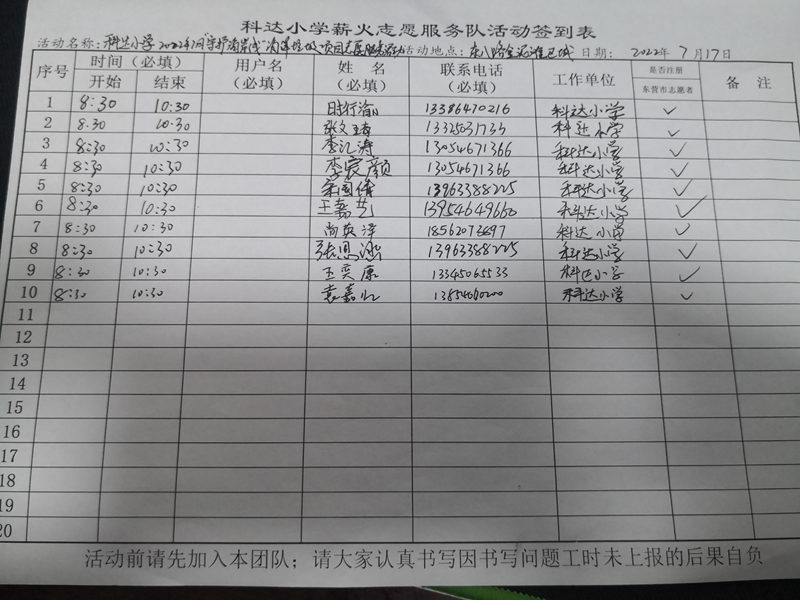 科达小学薪火志愿服务队活动签到表
活动名称：科达小学2022年7月"守护海岸线"清洁垃圾 项目志愿服务活动 活动地点： 日期： 2022年7月17日
序号 时间（必填） 用户名（必填） 姓名（必填） 联系电话（必填） 工作单位 是否注册东营市志愿者 备注
开始 结束
1 8:30 10:30 13386470216 科达小学 ✓
2 8:30 10:30 13325031733 科达小学 ✓
3 8:30 10:30 李汇涛 13054671366 科达小学 ✓
4 8:30 10:30 李宸颜 13054671366 科达小学 ✓
5 8:30 10:30 13963388225 科达小学 ✓
6 8:30 10:30 王嘉艺 13954649660 科达小学 ✓
7 8:30 10:30 尚英泽 18562073697 科达小学 ✓
8 8:30 10:30 13963388225 科达小学 ✓
9 8:30 10:30 王奕康 13345065533 科达小学 ✓
10 8:30 10:30 袁嘉忆 13854660200 科达小学 ✓
11
12
13
14
15
16
17
18
19
20
活动前请先加入本团队；请大家认真书写因书写问题工时未上报的后果自负